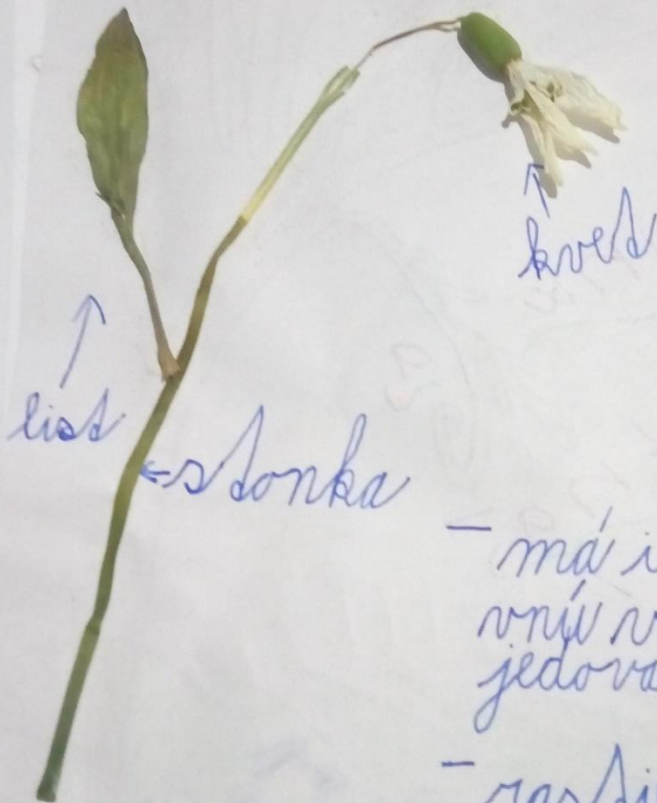 kvet
list
stonka
- má i
vnú v
jedova
- rasti